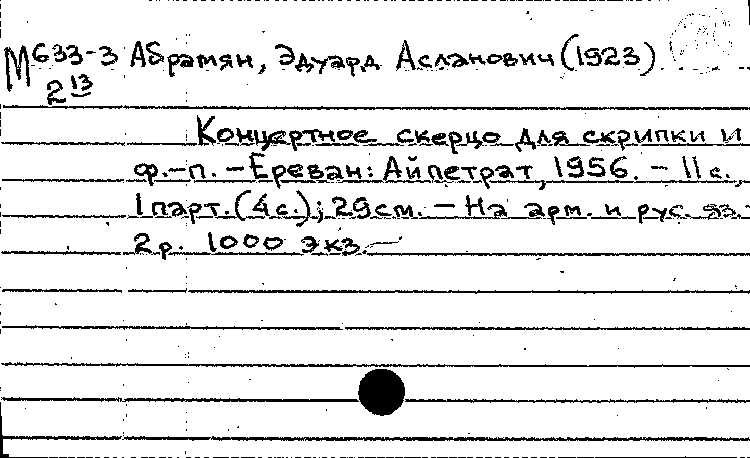 М 633-3 Абрамян, Эдуард Асланович (1923)
2 13
Концертное скерцо для скрипки и
ф.-п. – Ереван: Айпетрат, 1956. – 11 с.,
1 парт. (4 с.); 29 см. – На арм. и рус. яз. –
2 р. 1000 экз. –